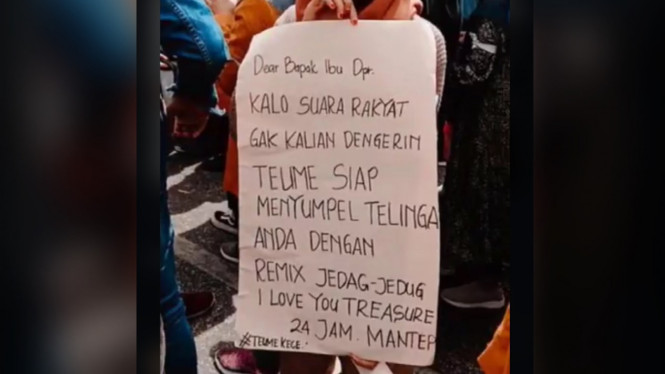 Dear Bapak Ibu Dpr.
KALO SUARA RAKYAT
GAK KALIAN DENGERIN
TEUME SIAP
MENYUMPEL TELINGA
ANDA DENGAN
REMIX JEDAG-JEDUG
I LOVE YOU TREASURE
24 JAM. MANTEP
#TEUME KECE.